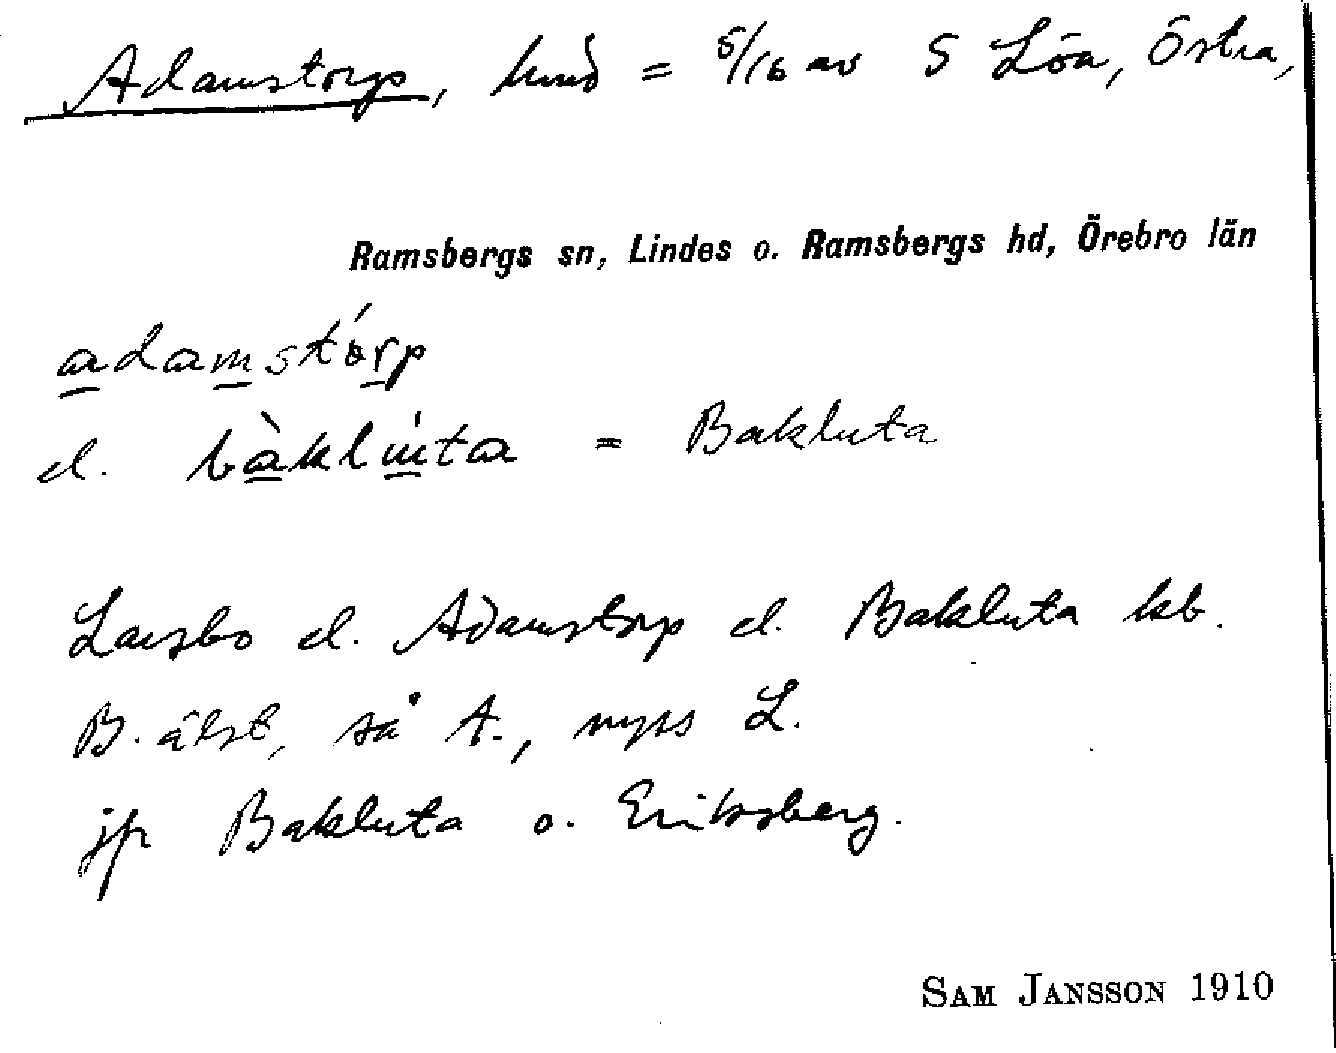 Adamstorp, hmd = 5/16 av S Löa, Östra,
Ramsbergs sn, Lindes o. Ramsbergs hd, Örebro län
adamstórp
el. bàklúta = Bakluta
Larsbo el. Adamstorp el. Bakluta kb.
B. älst, så A., nyss L.
jfr Bakluta o. Eriksberg.
SAM JANSSON 1910